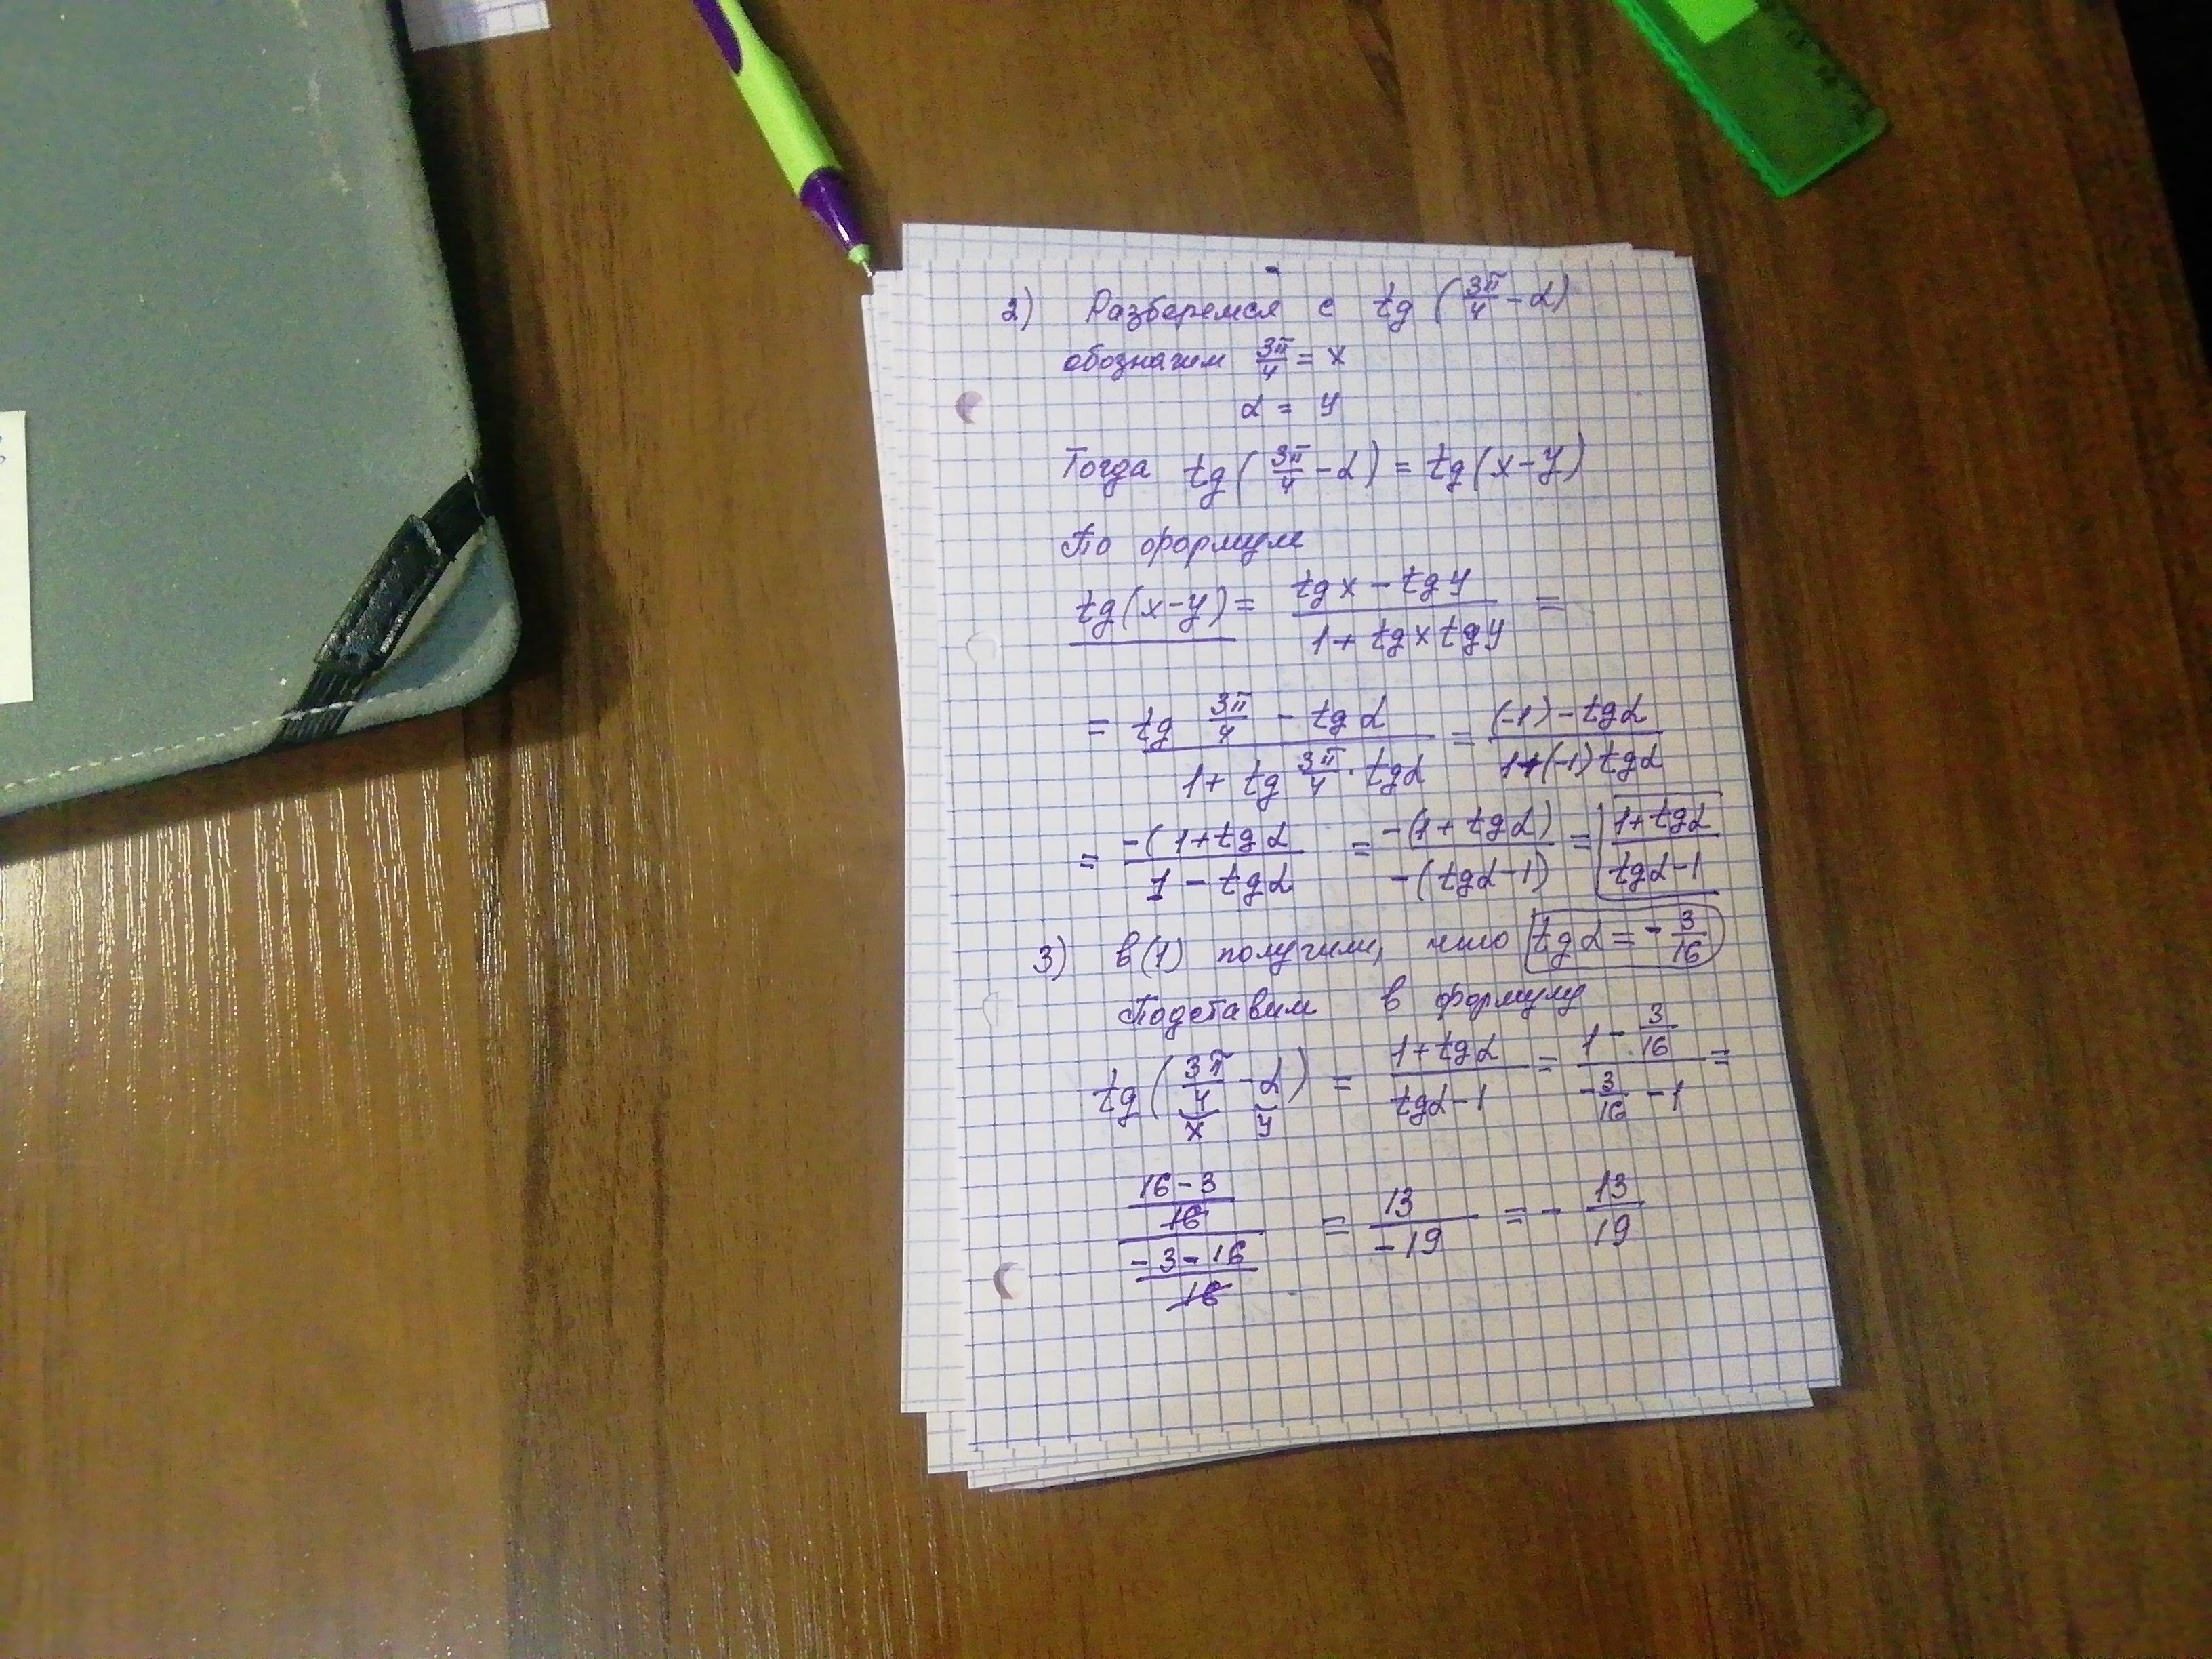 2) Разберемся с tg (3π/4 - α)
обозначим 3π/4 = x
α = y
Тогда tg (3π/4 - α) = tg (x-y)
По формуле
tg (x-y) = (tg x - tg y)/(1 + tg x tg y) =
= (tg 3π/4 - tg α)/(1 + tg 3π/4 · tg α) = ((-1) - tg α)/(1+(-1) tg α)
= (-(1+tg α)/(1 - tg α) = (-(1+tg α))/(-(tg α-1)) = (1+tg α)/(tg α-1)
3) в (1) получили, что tg α = - 3/16
Подставим в формулу
tg (3π/4 - α) = (1+tg α)/(tg α-1) = (1 - 3/16)/(-3/16 - 1) =
x y
((16-3)/16)/((-3-16)/16) = 13/-19 = - 13/19